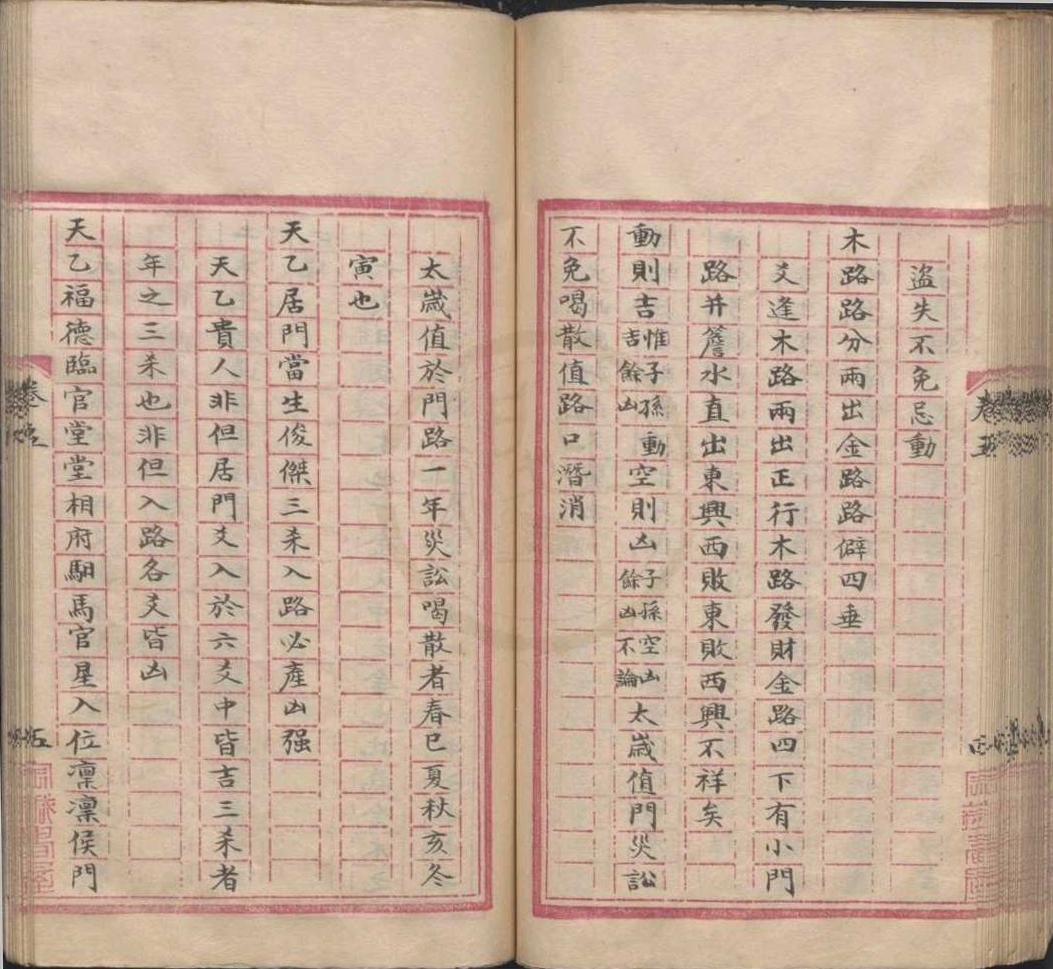 盜失不免忌動
木路路分兩出金路路僻四垂
爻逢木路兩出正行木路發財金路四下有小門
路井簷水直出東興西敗東敗西興不祥矣
動則吉惟子孫動吉餘凶空則凶子孫空凶餘凶不論太歲值門災訟
不免喝散值路口潛消
太歲值於門路一年災訟喝散者春巳夏秋亥冬
寅也
天乙居門當生俊傑三杀入路必產凶强
天乙貴人非但居門爻入於六爻中皆吉三杀者
年之三杀也非但入路各爻皆凶
天乙福德臨官堂堂相府駙馬官星入位凛凛侯門
卷五